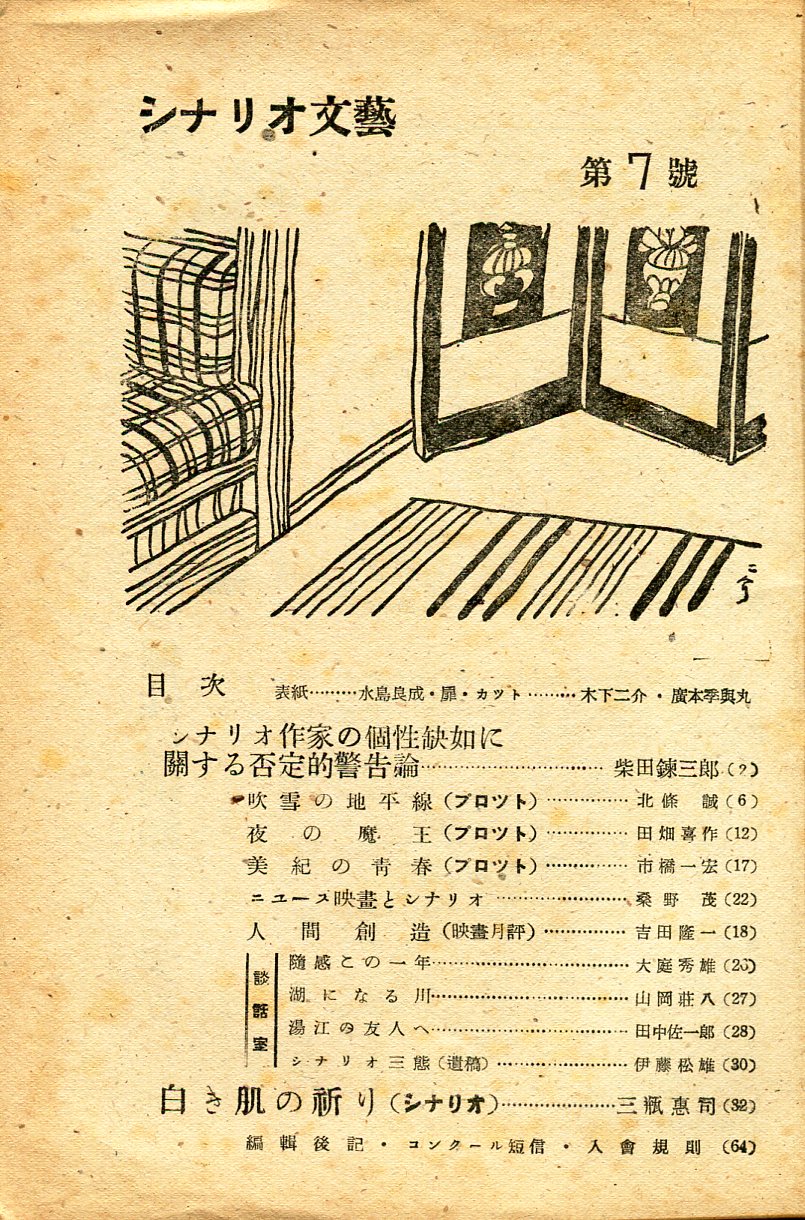 シナリオ文藝
第7號
目次
表紙………水島良成・扉・カツト………木下二介・廣本季與丸
シナリオ作家の個性缺如に
關する否定的警告論………柴田錬三郎(2)
吹雪の地平線(プロツト)………北條誠(6)
夜の魔王(プロツト)………田畑喜作(12)
美紀の靑春(プロツト)………市橋一宏(17)
ニユース映畫とシナリオ………桑野茂(22)
人間創造(映畫月評)………吉田隆一(18)
談話室
隨感との一年………大庭秀雄(26)
湖になる川………山岡莊八(27)
湯江の友人へ………田中佐一郎(28)
シナリオ三態(遺稿)………伊藤松雄(30)
白き肌の祈り(シナリオ)………三瓶惠司(32)
編輯後記・コンクール短信・入會規則(64)